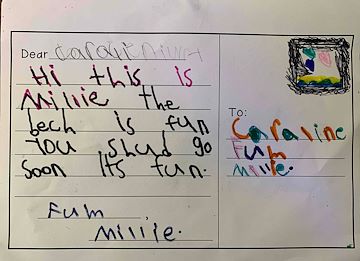 Dear
Hi this is
Millie the
bech is fun
you shud go
soon its fun.
Fum
Millie.
To:
Caraline
Fum
Millie.